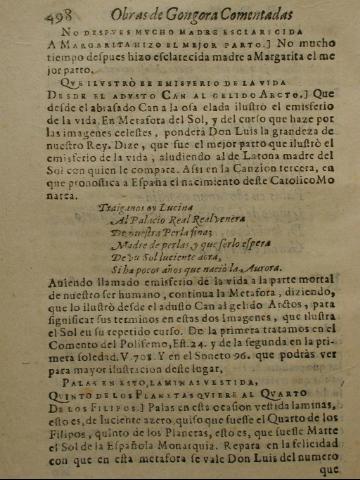 498 Obras de Gongora Comentadas
NO DESPVES MVCHO MADRE ESCLARICIDA
A MARGARITA HIZO EL MEJOR PARTO.] No mucho
tiempo despues hizo esclarecida madre a Margarita el me
jor parto.
QVE ILVSTRÒ EL EMISFERIO DE LA VIDA
DESDE EL ADVSTO CAN AL GELIDO ARCTO.] Que
desde el abrasado Can a la osa elada ilustrò el emisferio
de la vida. En Metafora del Sol, y del curso que haze por
las imagenes celestes, ponderà Don Luis la grandeza de
nuestro Rey. Dize, que fue el mejor parto que ilustrò el
emisferio de la vida, aludiendo al de Latona madre del
Sol con quien le compara. Assi en la Canzion tercera, en
que pronostica a España el nacimiento deste Catolico Mo
narca.
Traiganos oy Lucina
Al Palacio Real Real venera
De nuestra Perla fina;
Madre de perlas, y que serlo espera
De vn Sol luciente aora,
Si ha pocos años que naciò la Aurora.
Auiendo llamado emisferio de la vida a la parte mortal
de nuestro ser humano, continua la Metafora, diziendo,
que lo ilustrò desde el adusto Can al gelido Arctos, para
significar sus terminos en estas dos imagenes, que ilustra
el Sol en su repetido curso. De la primera tratamos en el
Comento del Polifemo, Est. 24. y de la segunda en la pri-
mera soledad. V. 708. Y en el Soneto 96. que podràs ver
para mayor ilustracion deste lugar,
PALAS EN ESTO, LAMINAS VESTIDA,
QVINTO DE LOS PLANETAS QVIERE AL QVARTO
DE LOS FILIPOS.] Palas en esta ocasion vestida laminas,
esto es, de luciente azero, quiso que fuesse el Quarto de los
Filipos, quinto de los Planetas, esto es, que fuesse Marte
el Sol de la Española Monarquia. Repara en la felicidad
con que en esta metafora se vale Don Luis del numero
que